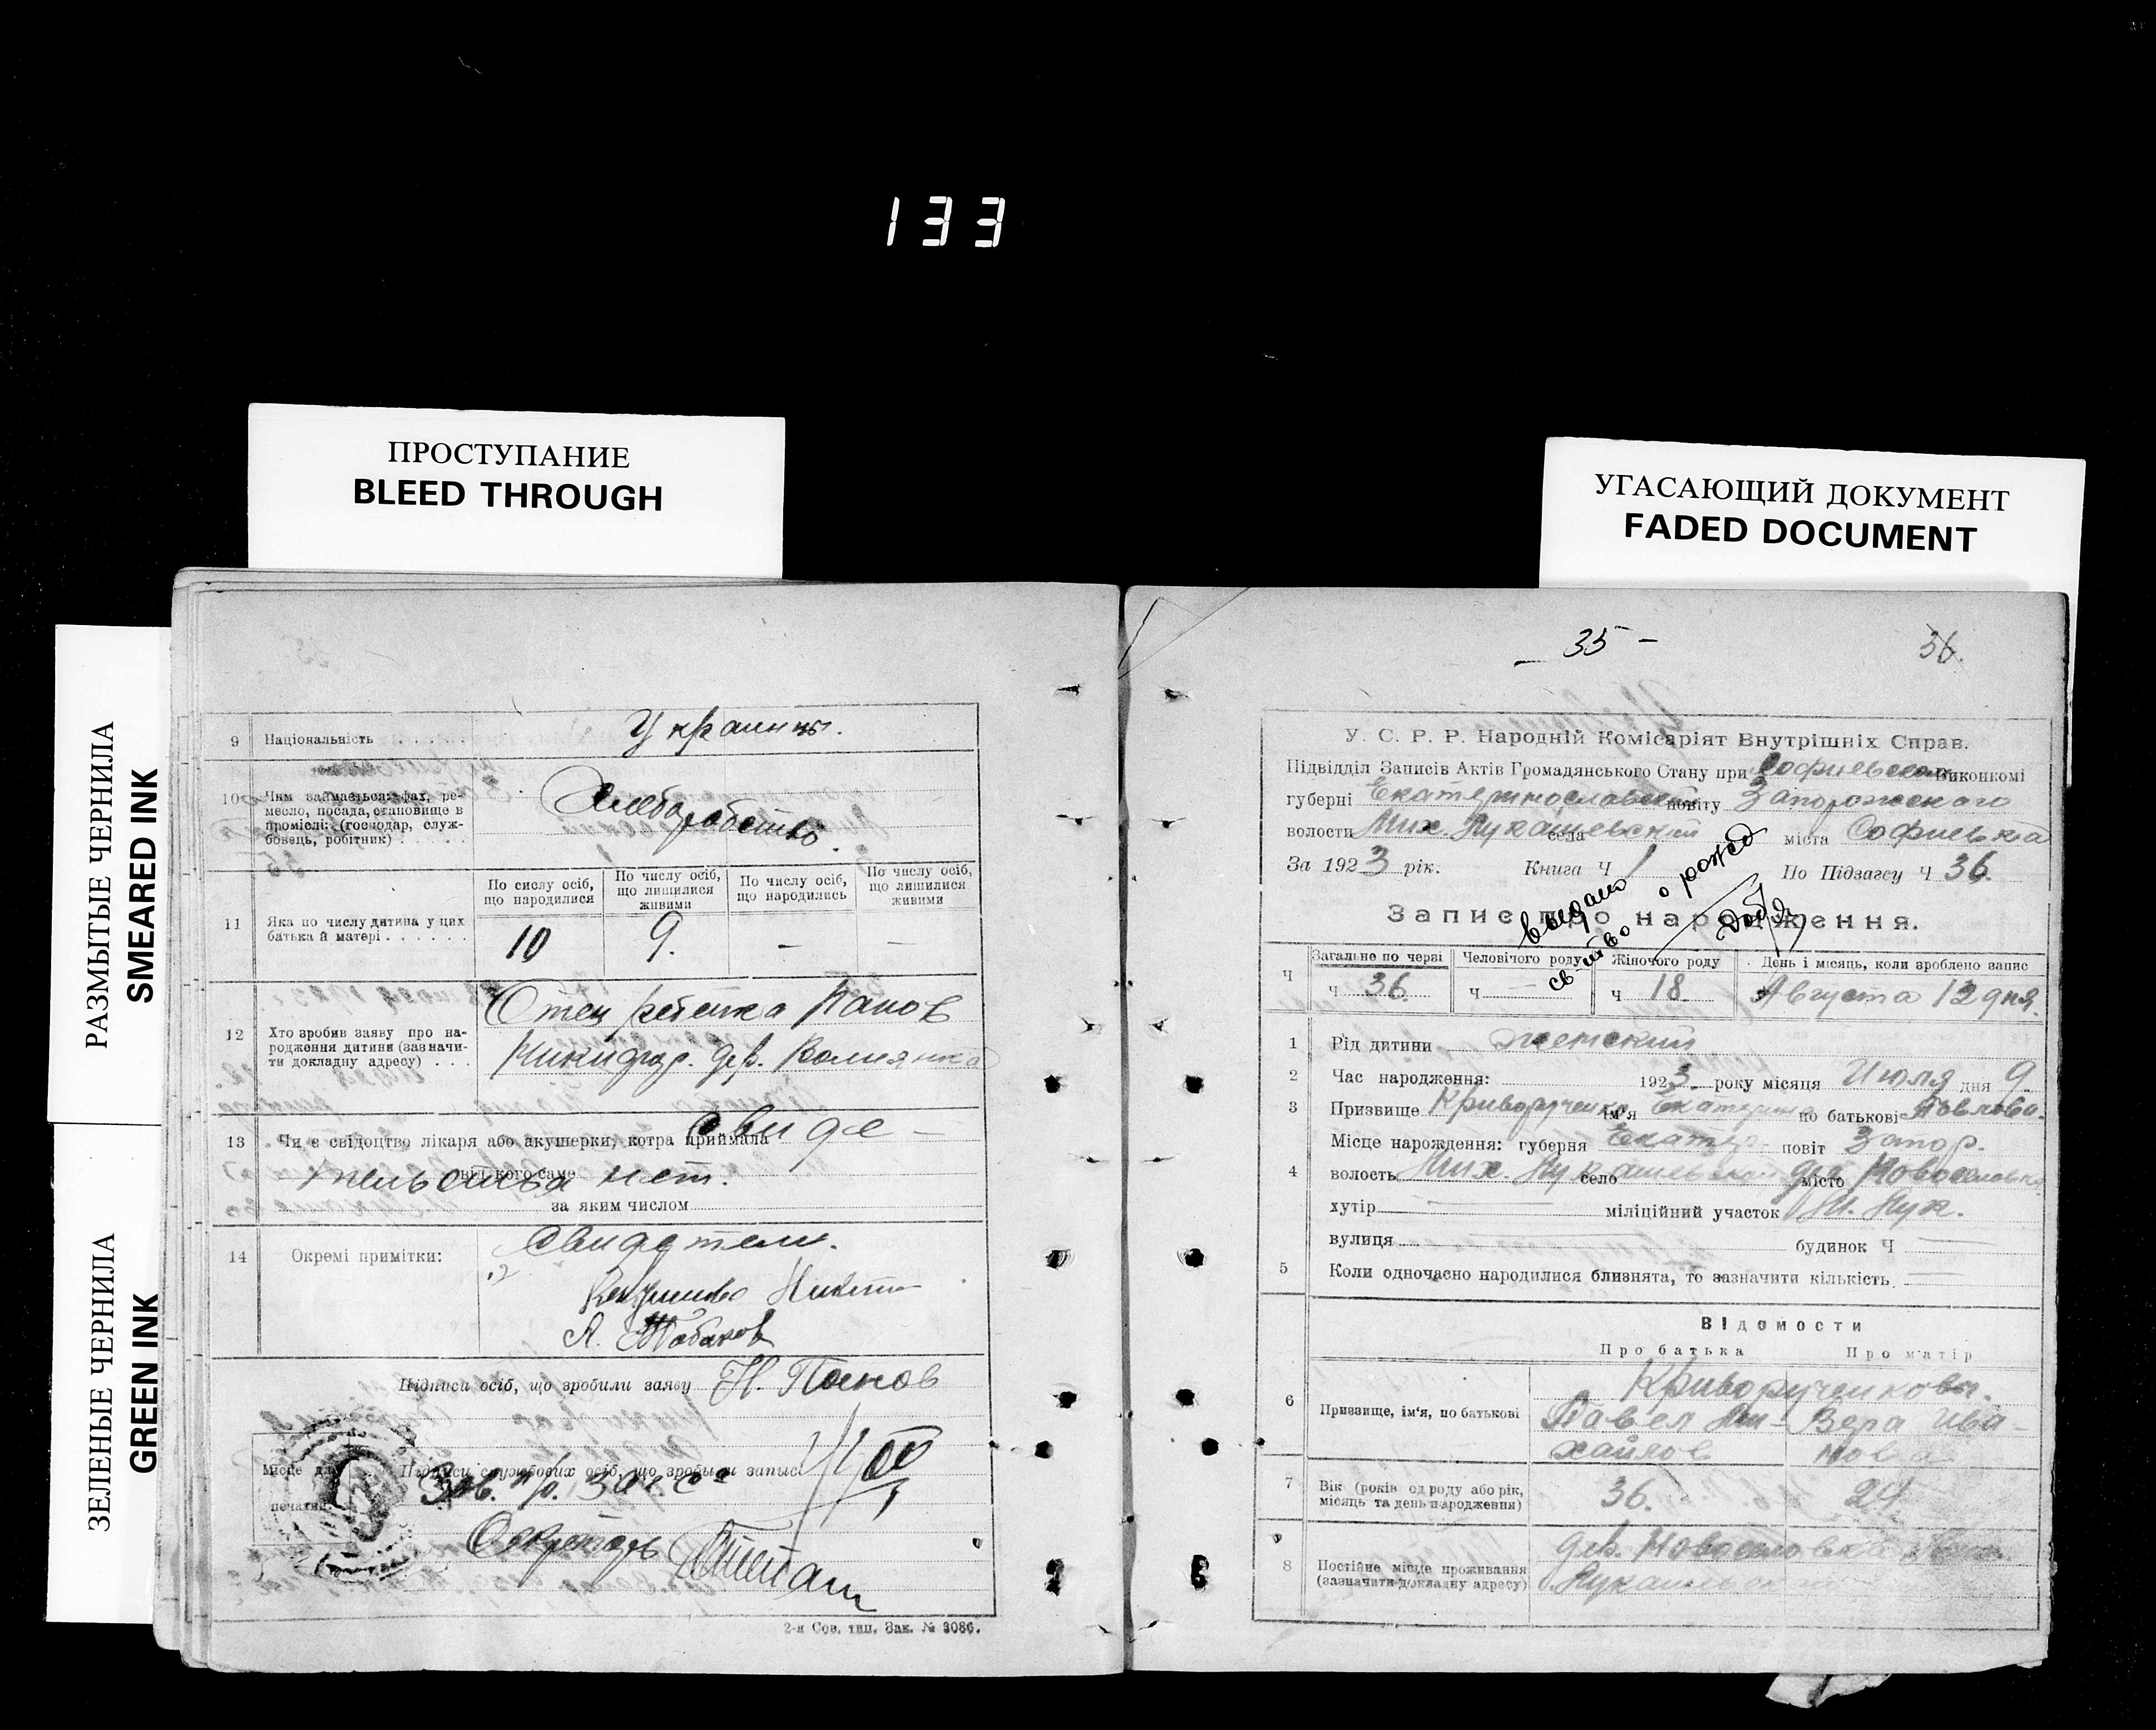 133
ПРОСТУПАНИЕ
BLEED THROUGH
УГАСАЮЩИЙ ДОКУМЕНТ
FADED DOCUMENT
РАЗМЫТЫЕ ЧЕРНИЛА
SMEARED INK
ЗЕЛЕНЫЕ ЧЕРНИЛА
GREEN INK
9 Національність Украинцы.
10 Чим займається: фах, ре-
месло, посада, становище в
промислі: (господар, служ-
бовець, робітник)
Хлеборобство.
По сислу осіб, що народилися
По числу осіб, що лишилися живими
По числу осіб, що народились
По числу осіб, що лишилися живими
11 Яка по числу дитина у цих
батька й матері
10 9. - -
12 Хто зробив заяву про на-
родження дитини (зазначи-
ти докладну адресу)
Отец ребенка Панов
Никифор. дер. Волнянка
13 Чи є свідоцтво лікаря або акушерки, котра приймала Свиде-
від кого саме тельства нет.
за яким числом
14 Окремі примітки: Свидетели.
А. Табаков
Підписи осіб, що зробили заяву Н. Панов
Місце для
печатки.
Підписи службових осіб, що зробили запис:
Зав. п/о. Загса
Секретарь
2-я Сов. тип. Зак. № 3086.
- 35 -
36.
У. С. Р. Р. Народній Комісаріят Внутрішніх Справ.
Підвідділ Записів Актів Громадянського Стану при Софиевском Виконкомі
губерні Екатеринославской повіту Запорожского
волости Мих. Лукашевской села міста Софиевка
За 1923 рік. Книга Ч 1 По Підзагсу Ч 36.
выдано
св-тво о рожд
Запис про народження.
Ч Загальне по черзі Человічого роду Жіночого роду День і місяць, коли зроблено запис
ч 36 ч — ч 18 Августа 12 дня.
1 Рід дитини женский
2 Час народження: 1923 року місяця Июля дня 9.
3 Призвище Криворученко ім'я Екатерина по батькові Павлова.
4 Місце нарождення: губерня Екатер- повіт Запор.
волость Мих. Лукашевской село дер. місто Новоселовка
хутір — міліційний участок М. Лук.
вулиця будинок Ч —
5 Коли одночасно народилися близнята, то зазначити кількість —
Відомости
Про батька Про матір
6 Призвище, ім'я, по батькові
Криворученковы.
Павел Ми- Вера Ива-
хайлов нова
7 Вік (років од роду або рік,
місяць та день народження)
36. 24.
8 Постійне місце проживання
(зазначити докладну адресу)
дер. Новоселовка